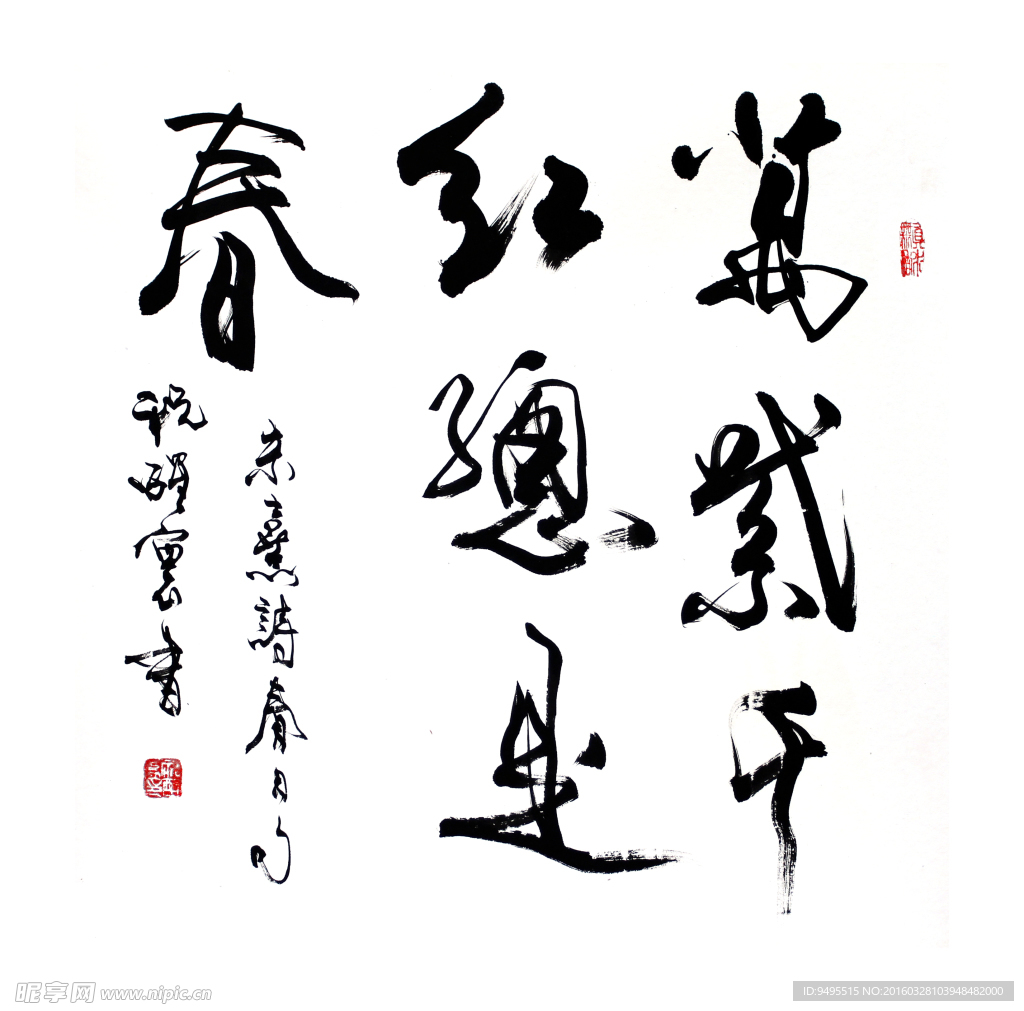 萬紫千
紅總是
春
朱熹詩春日句
祝碩寰書
昵享网 www.nipic.cn
ID:9495515 NO:20160328103948482000